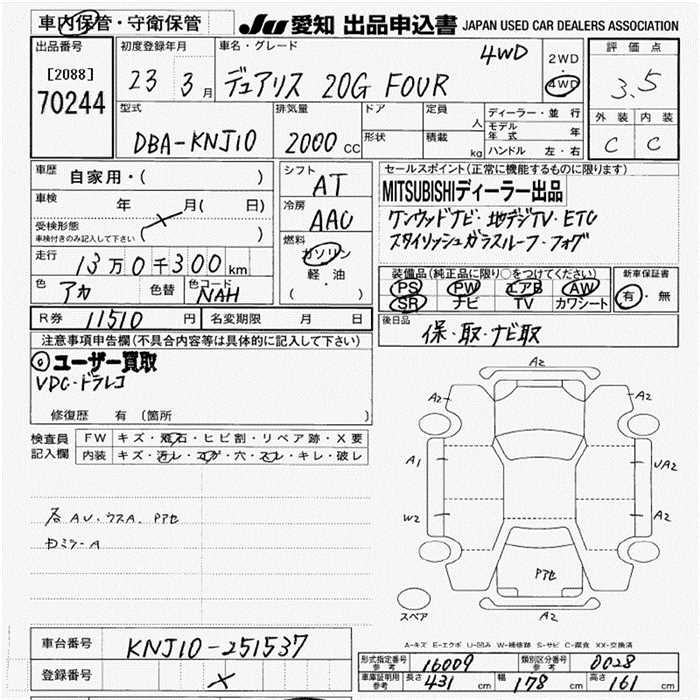 車内保管・守衛保管
JU 愛知 出品申込書 JAPAN USED CAR DEALERS ASSOCIATION
出品番号
[2088]
70244
初度登録年月
23 3月
車名・グレード
デュアリス 20G FOUR
4WD
2WD
・
4WD
評価点
3.5
外装 内装
C C
型式
DBA-KNJ10
排気量
2000 CC
ドア
形状
定員 人
積載 kg
ディーラー・並行
モデル年式 年
ハンドル 左・右
車歴
自家用・( )
車検
年 月( 日)
受検形態
車検付きのみ記入して下さい
( )
走行
13万0千300km
色
アカ
色替
色コード
NAH
シフト
AT
冷房
AAC
燃料
ガソリン
軽・油
( )
セールスポイント(正常に機能するものに限ります)
MITSUBISHIディーラー出品
ケンウッドナビ・地デジTV・ETC
スタイリッシュガラスルーフ・フォグ
装備品(純正品に限り○をつけてください)
PS PW エアB AW
SR ナビ TV カワシート
新車保証書
有・無
R券 11510円
名変期限 月 日
後日品
保・取・ナビ取
注意事項申告欄(不具合内容等は具体的に記入して下さい)
◎ユーザー買取
VDC・ドラレコ
修復歴 有 (箇所 )
検査員
記入欄
FW キズ・飛石・ヒビ割・リペア跡・X要
内装 キズ・汚レ・コゲ・穴・スレ・キレ・破レ
各AU・ウスA. Pアセ
ミラーA
A2
A2 A2
A1 UA2
W2 A2
Pアセ
スペア
A2
A-キズ E-エクボ U-凹み W-補修跡 S-サビ C-腐食 XX-交換済
車台番号
KNJ10-251537
登録番号
形式指定番号
参考
16009
類別区分番号
参考
0028
車庫証明用
参考
長さ 431 cm 幅 178 cm 高さ 161 cm